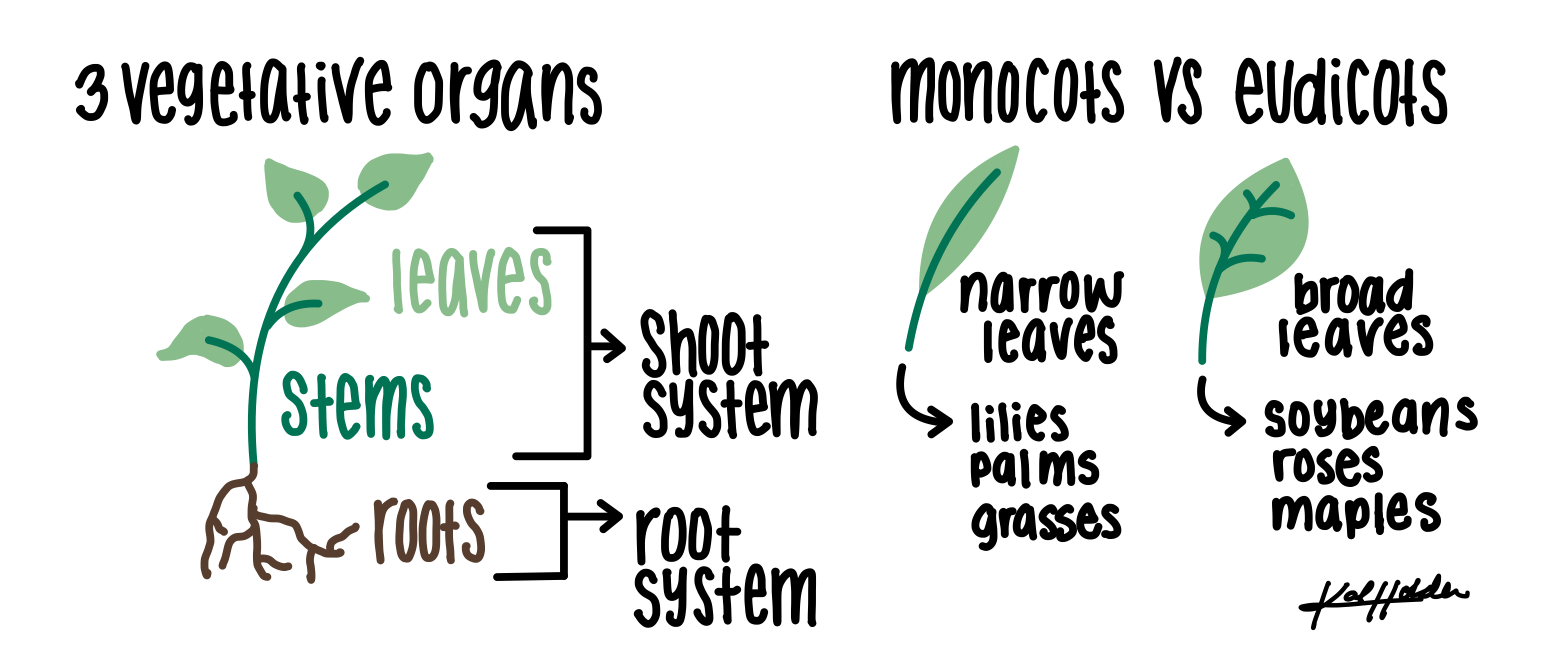 3 vegetative organs
leaves
stems
shoot
system
roots
root
system
monocots vs eudicots
narrow
leaves
lilies
palms
grasses
broad
leaves
soybeans
roses
maples